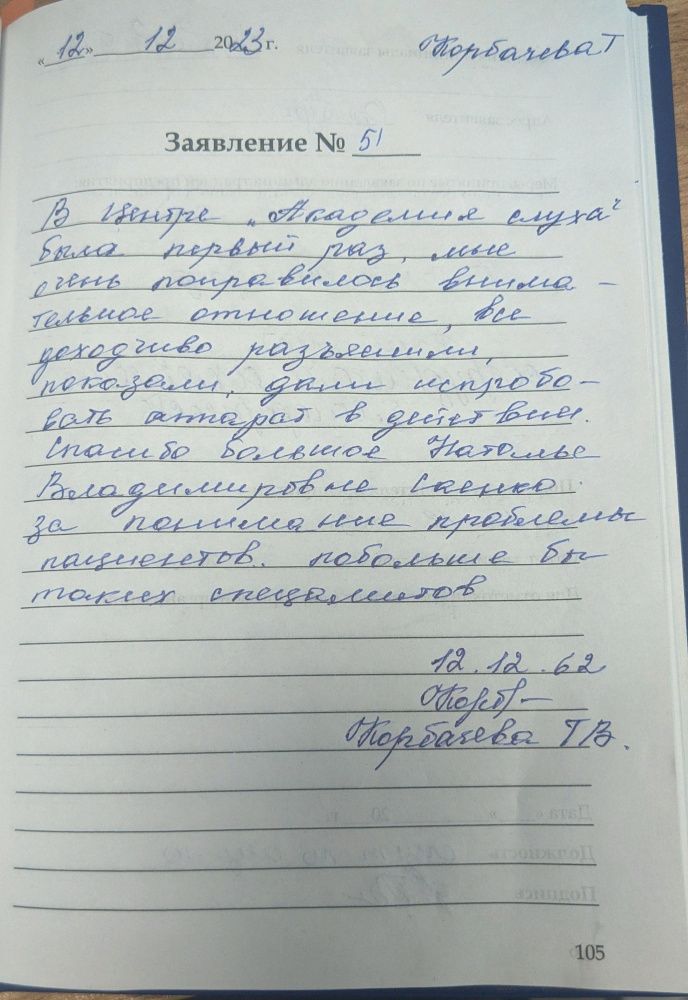 «12» 12 2023 г. Корбачева Т
Заявление № 51
В Центре „Академия слуха"
была первый раз, мне
очень понравилось внима-
тельное отношение, все
доходчиво разъяснили,
показали, дали испробо-
вать аппарат в действии.
Спасибо большое Наталье
Владимировне Саенко
за понимание проблемы
пациентов. побольше бы
таких специалистов
12.12.62
Корбачева ТВ.
105